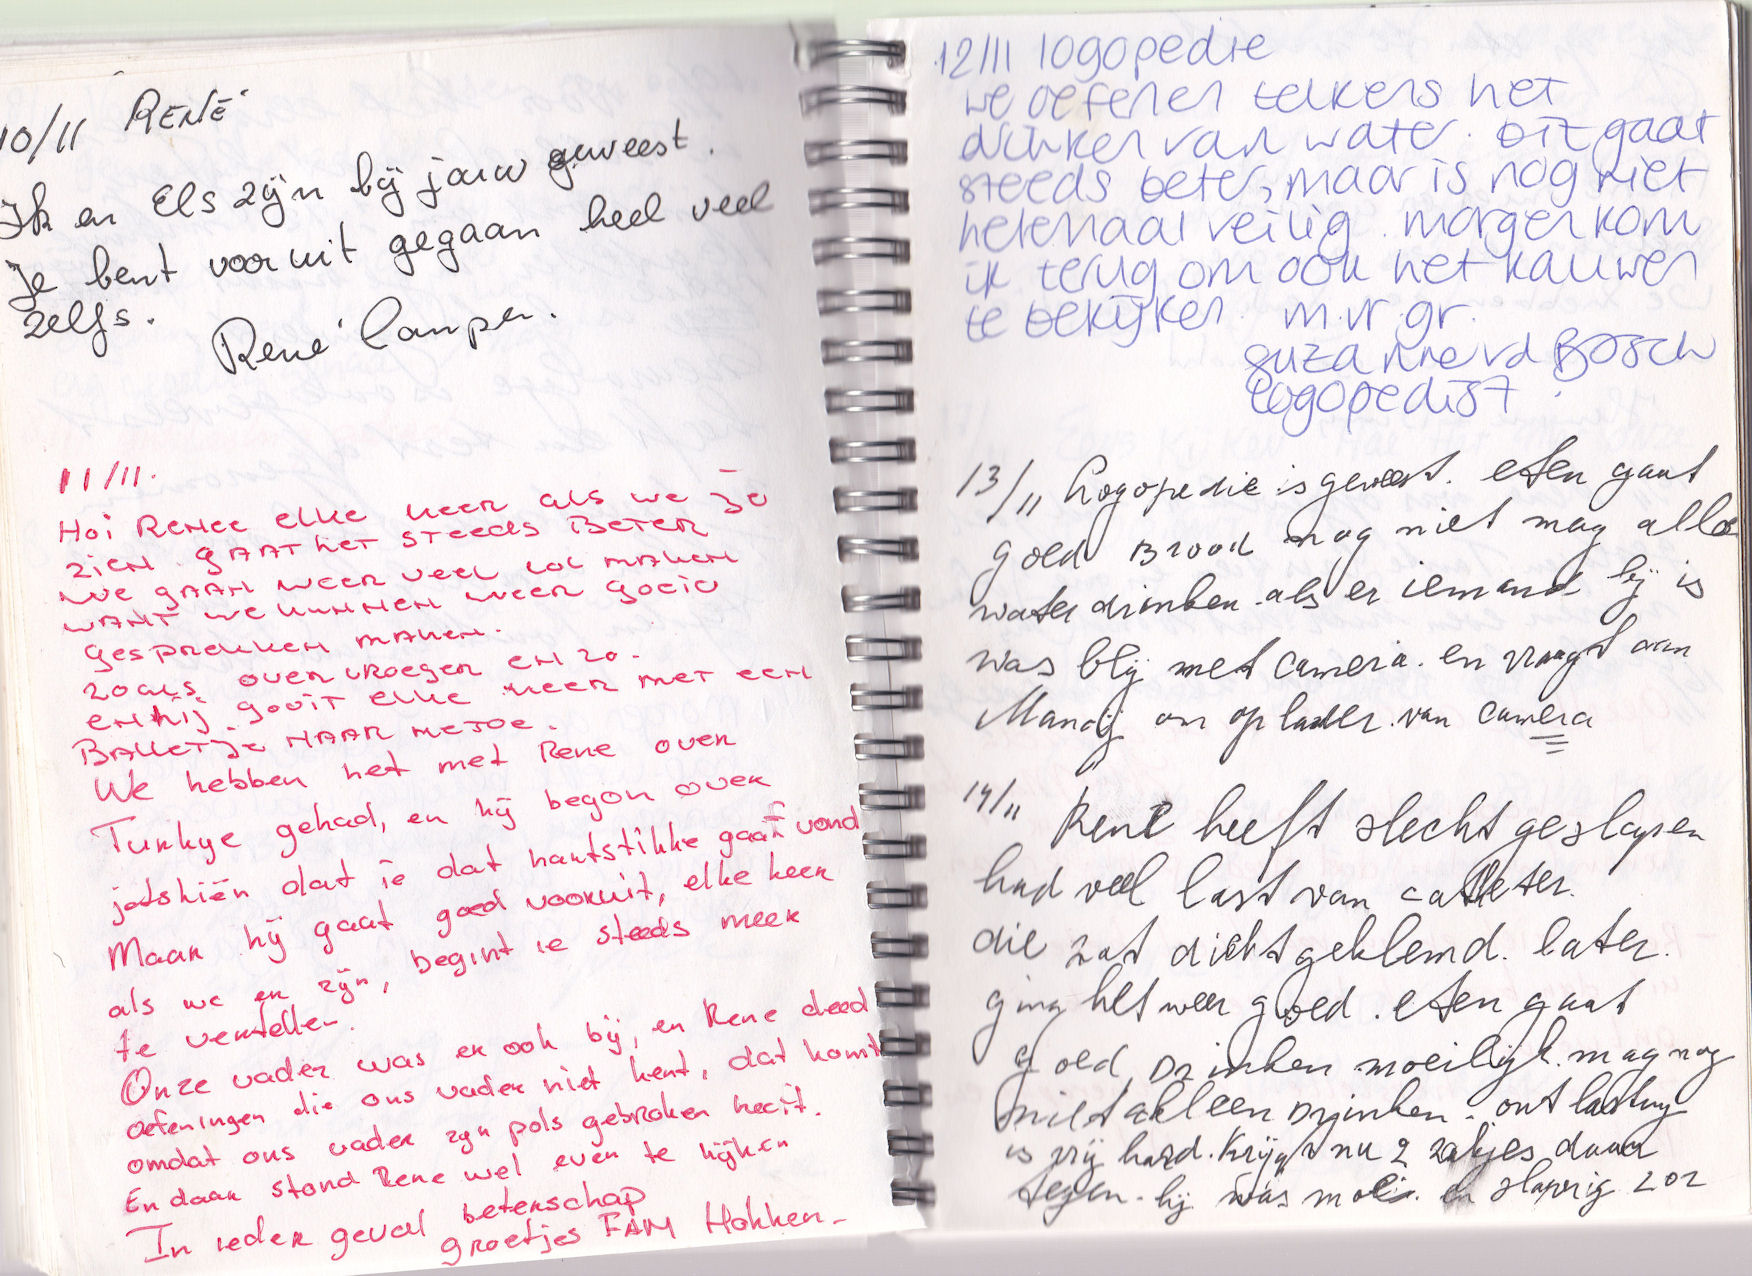 10/11 RENÉ
Ik en Els zijn bij jouw geweest.
Je bent vooruit gegaan heel veel
zelfs.
René Camper.
11/11.
Hoi Renee elke keer als we je
zien gaat het steeds beter
we gaan weer veel lol maken
want we kunnen weer goeie
gesprekken maken.
zoals over vroeger en zo.
en hij gooit elke keer met een
balletje naar mejoe.
We hebben het met Rene over
Turkye gehad, en hij begon over
jetskiën dat ie dat hartstikke gaaf vond
Maar hij gaat goed vooruit, elke keer
als we er zijn, begint ie steeds meer
te vertellen.
Onze vader was er ook bij, en Rene deed
oefeningen die ons vader niet kent, dat komt
omdat ons vader zijn pols gebroken heeft.
En daar stond Rene wel even te kijken
In ieder geval beterschap
groetjes FAM Hokken-
12/11 logopedie
we oefenen telkens het
drinken van water. Dit gaat
steeds beter, maar is nog niet
helemaal veilig. morgen kom
ik terug om ook het kauwen
te bekijken. m.vr.gr.
Suzanne vd Bosch
logopedist.
13/11 Logopedie is geweest. eten gaat
goed Brood nog niet mag alles
water drinken. als er iemand bij is
was blij met camera. en vraagt aan
Mandy om oplader. van camera
14/11 René heeft slecht geslapen
had veel last van catheter.
die zat dichtgeklemd. later.
ging het weer goed. eten gaat
goed, Drinken moeilijk. mag nog
niet alleen Drinken. ontlasting
is vrij hard. Krijgt nu 2 zakjes daar
tegen. hij was moe. en slaperig ZOZ